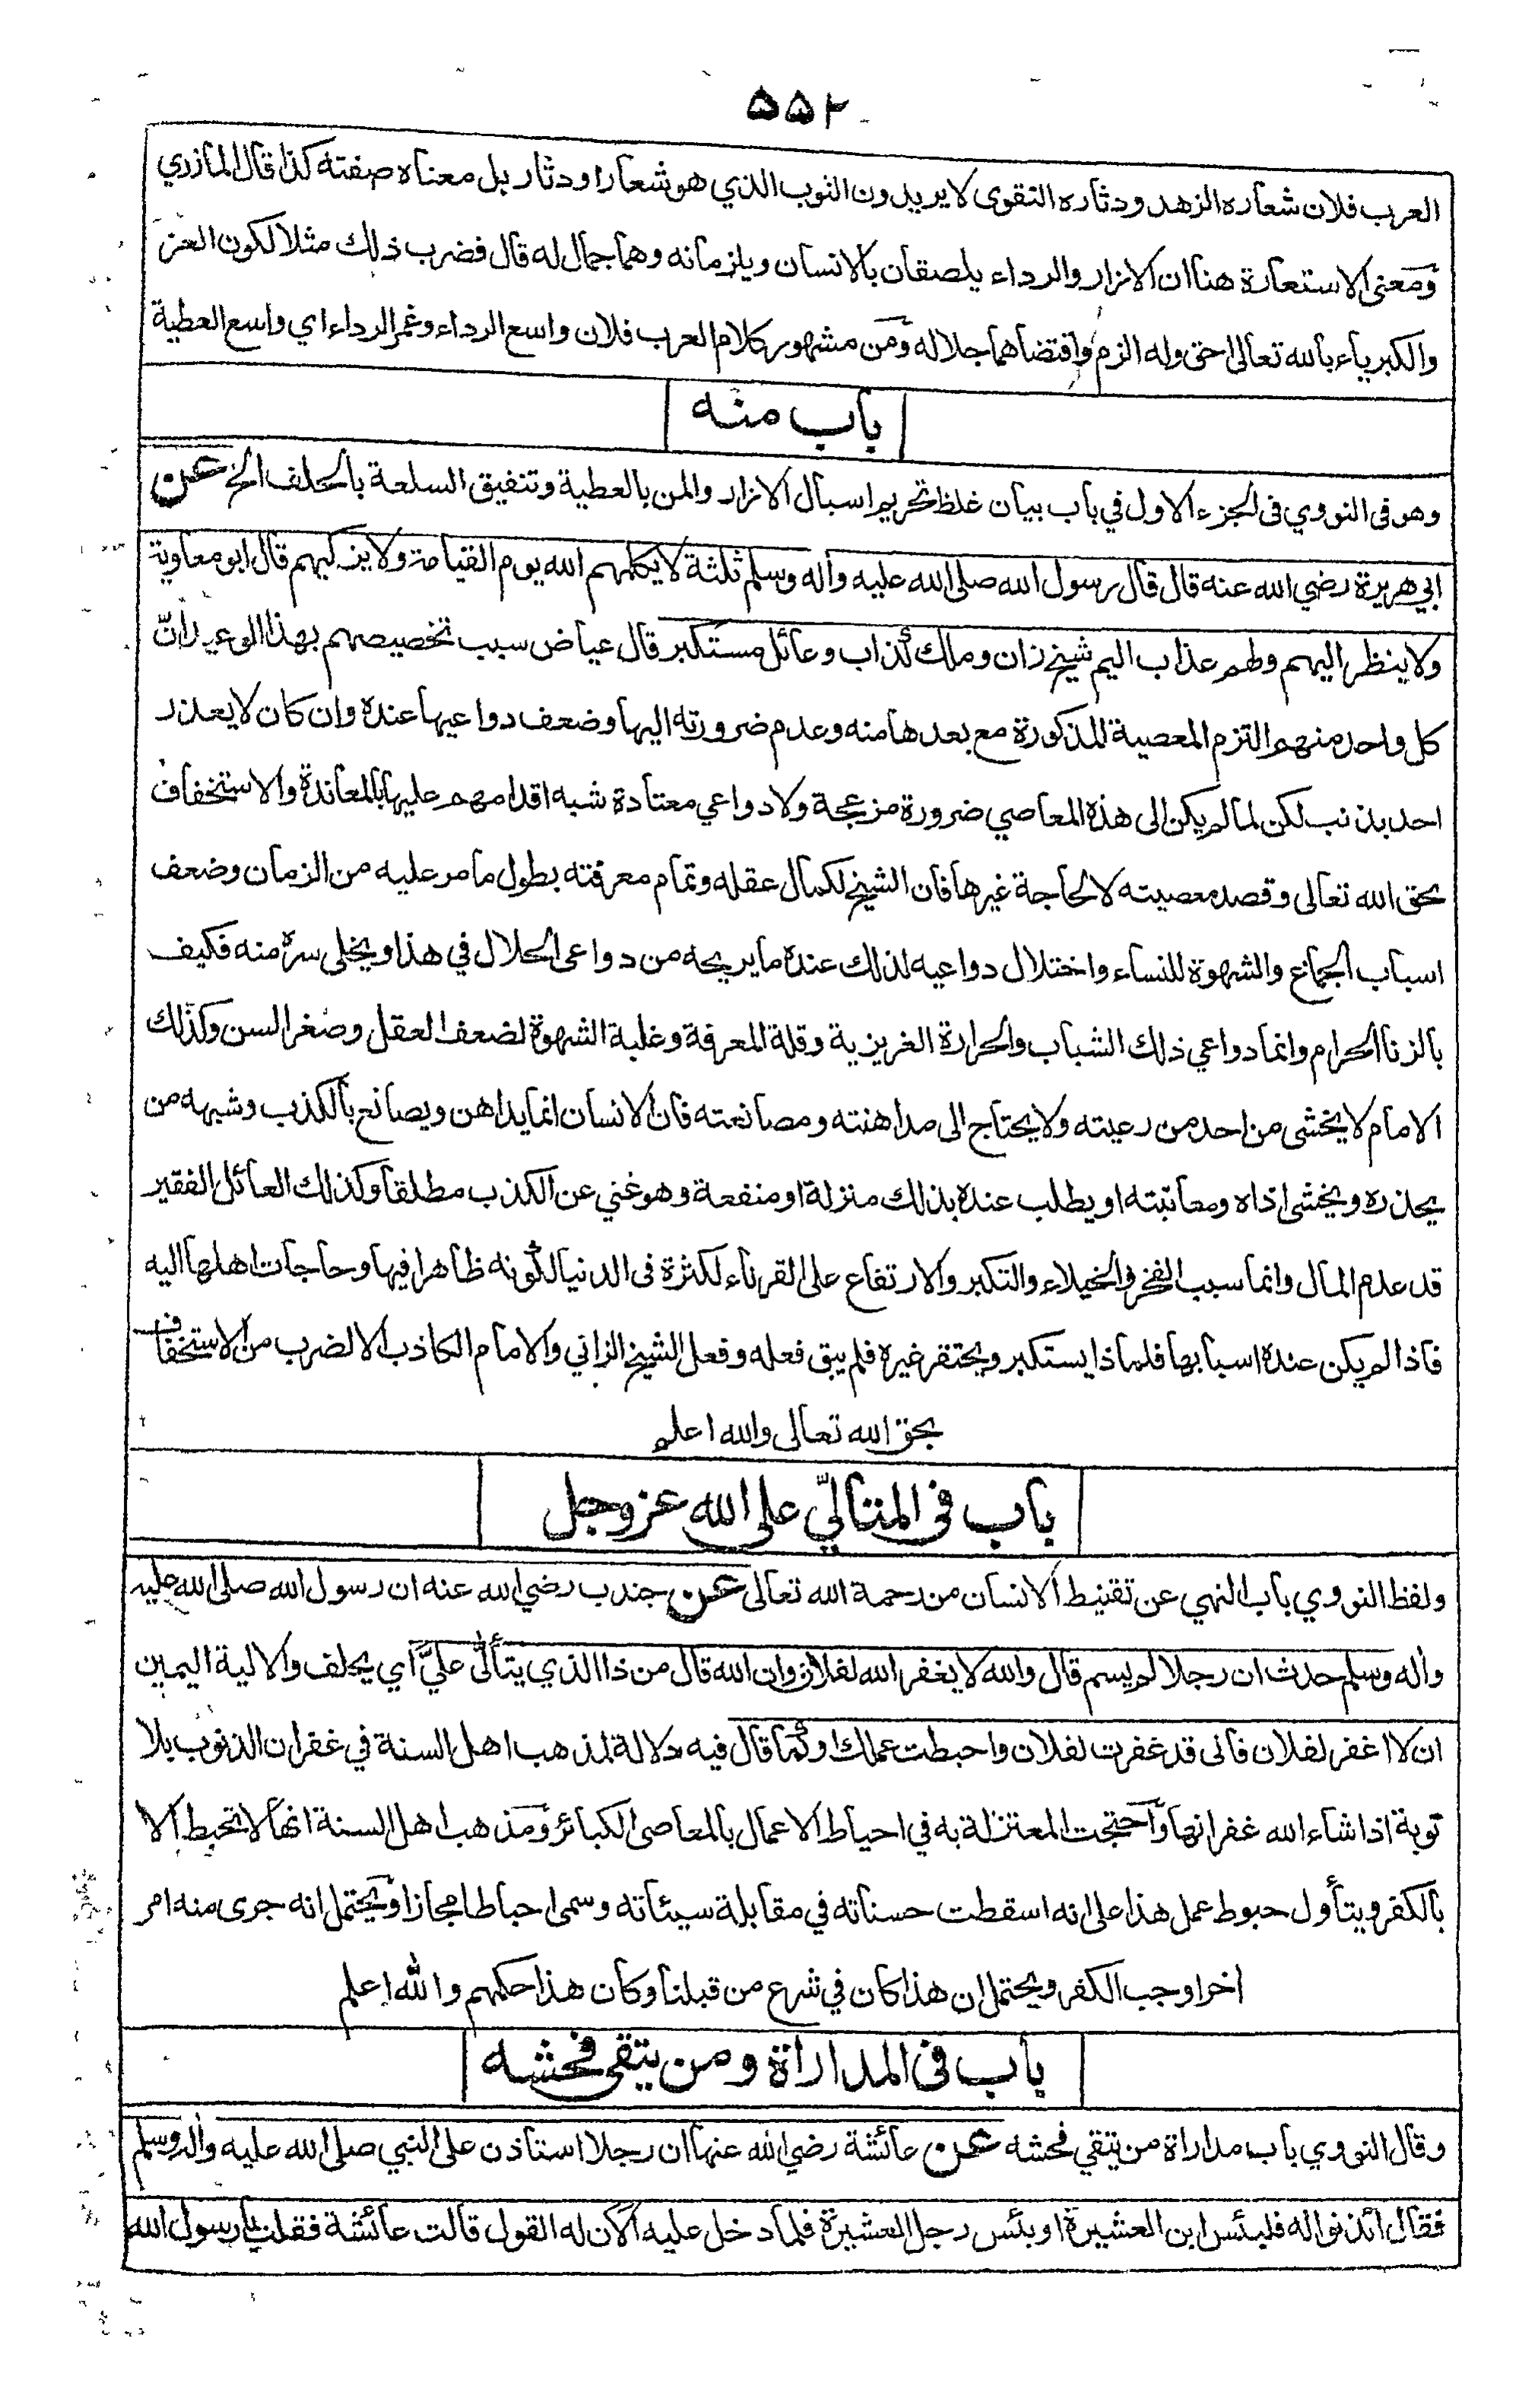 ۵۵۲
العرب فلان شعاره الزهد ودثاره التقوى لا يريدون الثوب الذي هو شعار او دثار بل معناه صفته كذا قال المازري
ومعنى الاستعارة هنا ان الازار والرداء يلصقان بالانسان ويلزمانه وهما جمال له قال فضرب ذلك مثلا لكون العز
والكبرياء بالله تعالى احق وله الزم واقتضاهما جلاله ومن مشهور كلام العرب فلان واسع الرداء وغمر الرداء اي واسع العطية
باب منه
وهو فى النووي فى الجزء الاول في باب بيان غلظ تحريم اسبال الازار والمن بالعطية وتنفيق السلعة بالحلف الخ عن
ابي هريرة رضي الله عنه قال قال رسول الله صلى الله عليه واٰله وسلم ثلثة لا يكلمهم الله يوم القيامة ولا يزكيهم قال ابو معاوية
ولا ينظر اليهم ولهم عذاب اليم شيخ زان وملك كذاب وعائل مستكبر قال عياض سبب تخصيصهم بهذا الوعيد انّ
كل واحد منهم التزم المعصية المذكورة مع بعدها منه وعدم ضرورته اليها وضعف دواعيها عنده وان كان لا يعذر
احد بذنب لكن لما لم يكن الى هذه المعاصي ضرورة مزعجة ولا دواعي معتادة شبه اقدامهم عليها بالمعاندة والاستخفاف
بحق الله تعالى وقصد معصيته لا لحاجة غيرها فان الشيخ لكمال عقله وتمام معرفته بطول ما مر عليه من الزمان وضعف
اسباب الجماع والشهوة للنساء واختلال دواعيه لذلك عنده ما يريحه من دواعى الحلال في هذا ويخلى سره منه فكيف
بالزنا الحرام وانما دواعي ذلك الشباب والحرارة الغريزية وقلة المعرفة وغلبة الشهوة لضعف العقل وصغر السن وكذلك
الامام لا يخشى من احد من رعيته ولا يحتاج الى مداهنته ومصانعته فان الانسان انما يداهن ويصانع بالكذب وشبهه من
يحذره ويخشى اذاه ومعاتبته او يطلب عنده بذلك منزلة او منفعة وهو غني عن الكذب مطلقا وكذلك العائل الفقير
قد عدم المال وانما سبب الفخر والخيلاء والتكبر والارتفاع على القرناء لكثرة فى الدنيا لكونه ظاهرا فيها وحاجات اهلها اليه
فاذا لم يكن عنده اسبابها فلماذا يستكبر ويحتقر غيره فلم يبق فعله وفعل الشيخ الزاني والامام الكاذب الا لضرب من الاستخفاف
بحق الله تعالى والله اعلم
باب فى المتألّي على الله عز وجل
ولفظ النووي باب النهي عن تقنيط الانسان من رحمة الله تعالى عن جندب رضي الله عنه ان رسول الله صلى الله عليه
واٰله وسلم حدث ان رجلا لم يسم قال والله لا يغفر الله لفلان وان الله قال من ذا الذي يتألّى عليّ اي يحلف والالية اليمين
ان لا اغفر لفلان فانى قد غفرت لفلان واحبطت عملك او كما قال فيه دلالة لمذهب اهل السنة في غفران الذنوب بلا
توبة اذا شاء الله غفرانها واحتجت المعتزلة به في احباط الاعمال بالمعاصى الكبائر ومذهب اهل السنة انها لا تحبط الا
بالكفر ويتأول حبوط عمل هذا على انه اسقطت حسناته في مقابلة سيئاته وسمى احباطا مجازا ويحتمل انه جرى منه امر
اخر اوجب الكفر ويحتمل ان هذا كان في شرع من قبلنا وكان هذا حكمهم والله اعلم
باب فى المداراة ومن يتقى فحشه
وقال النووي باب مداراة من يتقي فحشه عن عائشة رضي الله عنها ان رجلا استاذن على النبي صلى الله عليه واٰله وسلم
فقال ائذنوا له فلبئس ابن العشيرة او بئس رجل العشيرة فلما دخل عليه الان له القول قالت عائشة فقلت يا رسول الله